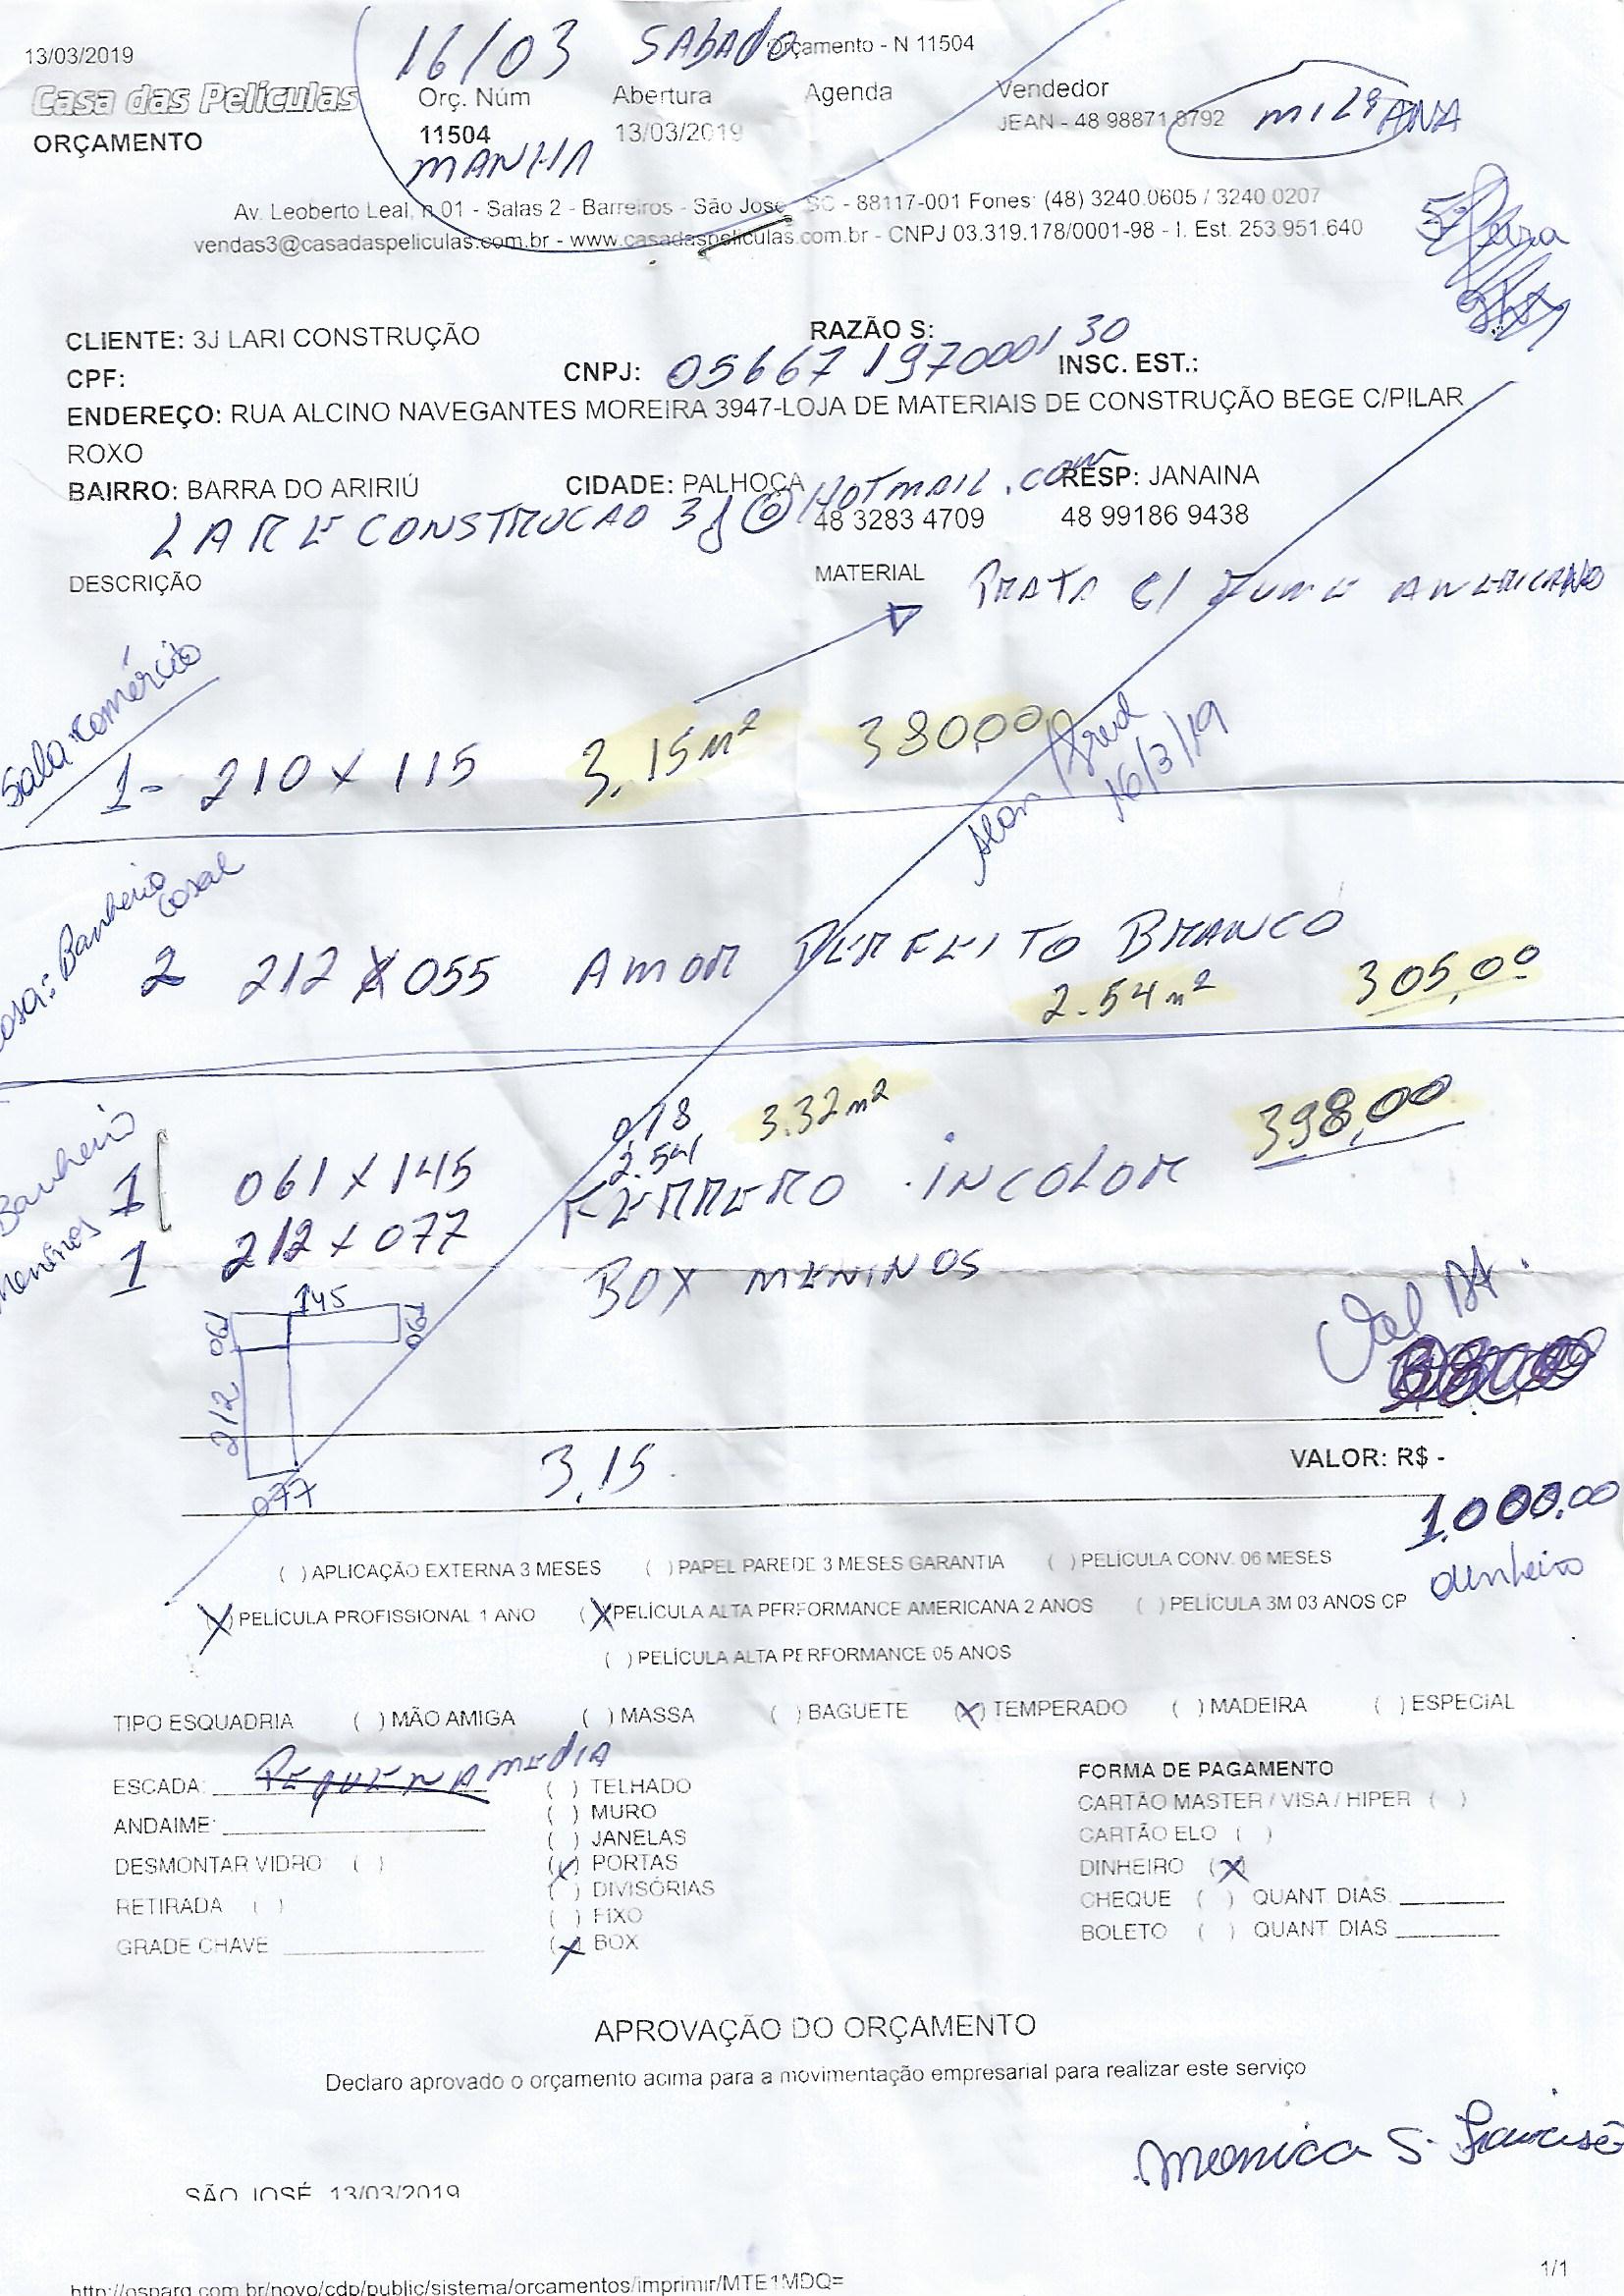 13/03/2019
16/03 SABADO
Orçamento - N 11504
Casa das Películas
Orç. Núm Abertura Agenda Vendedor
ORÇAMENTO
11504 13/03/2019 JEAN - 48 98871 8792
MANHA
Av. Leoberto Leal, n.01 - Salas 2 - Barreiros - São José - SC - 88117-001 Fones: (48) 3240.0605 / 3240.0207
vendas3@casadaspeliculas.com.br - www.casadaspeliculas.com.br - CNPJ 03.319.178/0001-98 - I. Est. 253.951.640
CLIENTE: 3J LARI CONSTRUÇÃO RAZÃO S:
CPF: CNPJ: 05667197000130 INSC. EST.:
ENDEREÇO: RUA ALCINO NAVEGANTES MOREIRA 3947-LOJA DE MATERIAIS DE CONSTRUÇÃO BEGE C/PILAR
ROXO
BAIRRO: BARRA DO ARIRIÚ CIDADE: PALHOÇA RESP: JANAINA
LAR E CONSTRUCAO 3J@HOTMAIL.com
48 3283 4709 48 99186 9438
DESCRIÇÃO MATERIAL PRATA C/ FUME AMERICANO
Sala comércio
1- 210 x 115 3.15m² 380,00
16/3/19
Banheiro casal
2 212 x 055 AMOR PERFEITO BRANCO
2.54m² 305,00
Banheiro meninos
018 3.32m² 398,00
2.54
1 061 x 145 FERRERO INCOLOR
1 212 x 077 BOX MENINOS
145
061 061
212
077
3.15
VALOR: R$ -
1.000.00
dinheiro
( ) APLICAÇÃO EXTERNA 3 MESES ( ) PAPEL PAREDE 3 MESES GARANTIA ( ) PELÍCULA CONV. 06 MESES
(X) PELÍCULA PROFISSIONAL 1 ANO (X) PELÍCULA ALTA PERFORMANCE AMERICANA 2 ANOS ( ) PELÍCULA 3M 03 ANOS CP
( ) PELÍCULA ALTA PERFORMANCE 05 ANOS
TIPO ESQUADRIA ( ) MÃO AMIGA ( ) MASSA ( ) BAGUETE (X) TEMPERADO ( ) MADEIRA ( ) ESPECIAL
ESCADA: PEQUENA MEDIA
ANDAIME:
DESMONTAR VIDRO ( )
RETIRADA ( )
GRADE CHAVE
( ) TELHADO
( ) MURO
( ) JANELAS
(X) PORTAS
( ) DIVISÓRIAS
( ) FIXO
(X) BOX
FORMA DE PAGAMENTO
CARTÃO MASTER / VISA / HIPER ( )
CARTÃO ELO ( )
DINHEIRO (X)
CHEQUE ( ) QUANT DIAS
BOLETO ( ) QUANT DIAS
APROVAÇÃO DO ORÇAMENTO
Declaro aprovado o orçamento acima para a movimentação empresarial para realizar este serviço
Monica S.
SÃO JOSÉ, 13/03/2019
1/1
http://osparq.com.br/novo/cdp/public/sistema/orcamentos/imprimir/MTE1MDQ=